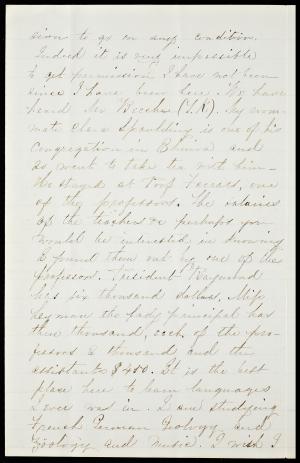 sion to go on any condition.
Indeed it is very impossible
to get permission I have not been
since I have been here. We have
heard Mr Beecher (T.K). My room-
mate Clara Spaulding is one of his
Congregation in Elmira and
so went to take tea with him—
He stayed at Prof Farrars, one
of the professors. The salaries
of the teachers &c perhaps you
would be interested in knowing
I found them out by one of the
professors. President Raymond
has six thousand dollars. Miss
Lyman the lady principal has
three thousand, each of the pro-
fessors 2 thousand and the
assistants $400. It is the best
place here to learn languages
I ever was in. I am studying
French German Geology and
Zoology and music. I wish I